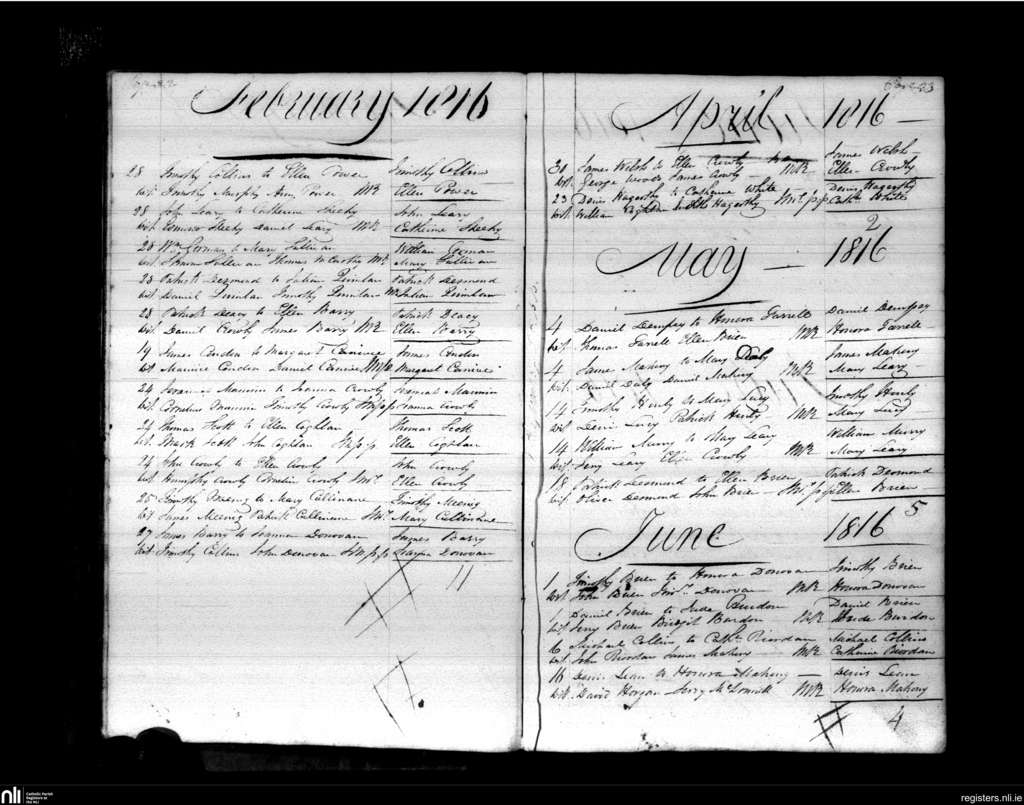 February 1816
28 Timothy Collins to Ellen Power Timothy Collins
wit Timothy Murphy Ann Power MR Ellen Power
28 John Leary to Catherine Sheehy John Leary
wit Edmund Sheehy Daniel Leary MR Catherine Sheehy
Wm Gorman to Mary Sullivan William Gorman
wit Sullivan Thomas McCarthy MR Mary Sullivan
Patrick Desmond to Julian Quinlan Patrick Desmond
wit Daniel Quinlan Timothy Quinlan MR Julian Quinlan
28 Patrick Deacy to Ellen Barry Patrick Deacy
wit Daniel Crowly James Barry MR Ellen Barry
19 James Condon to Margaret James Condon
wit Maurice Condon Daniel Margaret
24 Mannin to Joanna Crowly Mannin
wit Cornelius Mannin Timothy Crowly Joanna Crowly
24 Thomas Scott to Ellen Coghlan Thomas Scott
wit Mark Scott John Coghlan Ellen Coghlan
24 John Crowly to Ellen Crowly John Crowly
wit Humphry Crowly Cornelius Crowly Ellen Crowly
25 Timothy to Mary Cullinane Timothy
wit James Patrick Cullinane Mary Cullinane
27 James Barry to Joanna Donovan James Barry
wit Timothy Collins John Donovan Donovan
11
April 1816
30 James Welsh to Ellen Crowly James Welsh
wit George Woods James Crowly MR Ellen Crowly
23 Denis Hagerthy to Catherine White Denis Hagerthy
wit William Coghlan Hagerthy Cathe White
2
May 1816
4 Daniel Dempsy to Honora Farrell Daniel Dempsy
wit Thomas Farrell Ellen Brien MR Honora Farrell
4 James Mahony to Mary Daly James Mahony
wit Daniel Daly Daniel Mahony MR Mary Leary
14 Timothy Hurly to Mary Lucy Timothy Hurly
wit Lucy Patrick Hurly MR Mary Lucy
14 William Murry to Mary Leary William Murry
wit Jerry Leary Crowly MR Mary Leary
18 Patrick Desmond to Ellen Brien Patrick Desmond
wit Oliver Desmond John Brien Ellen Brien
5
June 1816
1 Timothy Brien to Honora Donovan Timothy Brien
wit John Brien Donovan MR Honora Donovan
Daniel Brien to Jude Burdon Daniel Brien
wit Jerry Brien Bridgit Burdon MR Jude Burdon
6 Michael Collins to Cathe Riordan Michael Collins
wit John Riordan James Mahony MR Catherine Riordan
16 Denis to Honora Mahony Denis
wit David Horgan Jerry MR Honora Mahony
4
nli
Catholic Parish
Registers at
the NLI
registers.nli.ie